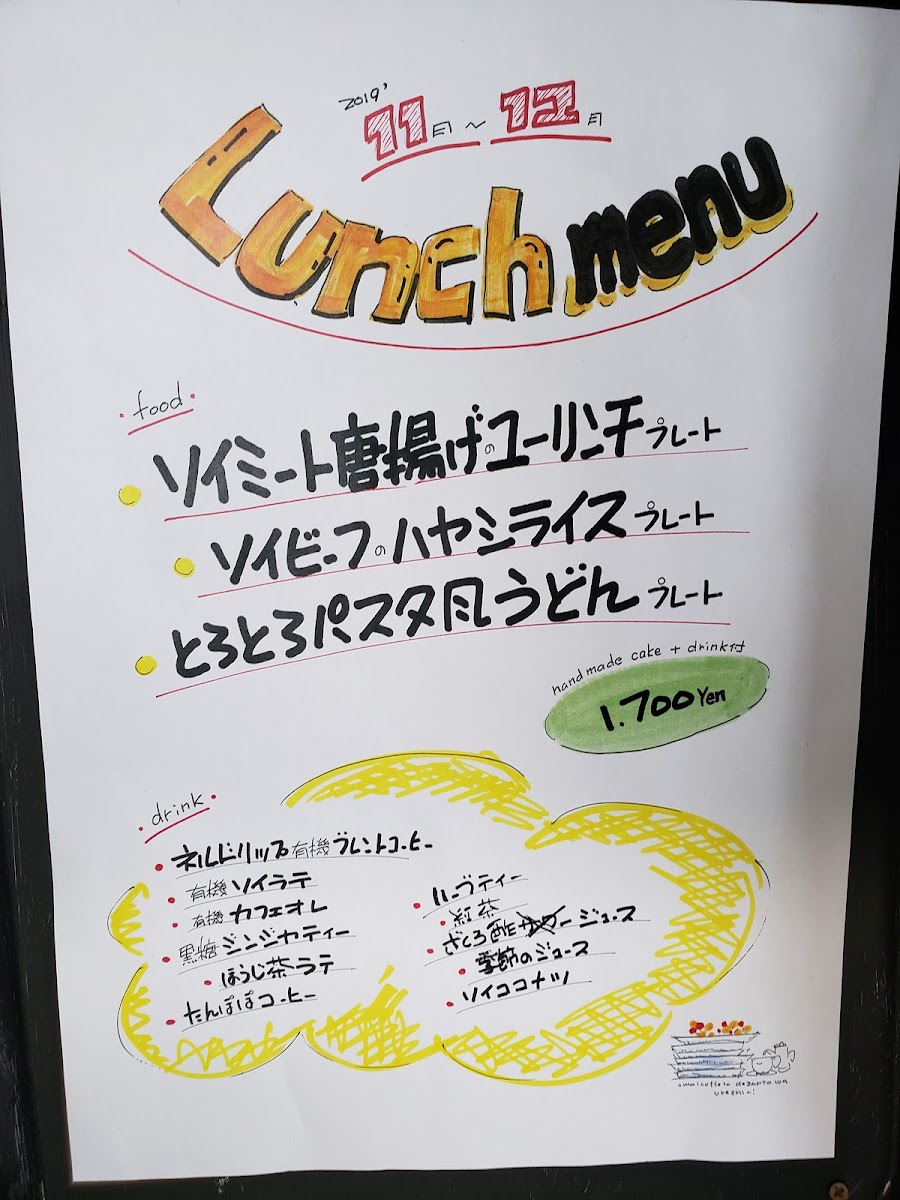 2019' 11月~12月
Lunch menu
food
ソイミート唐揚げのユーリンチプレート
ソイビーフのハヤシライスプレート
とろとろパスタ風うどんプレート
handmade cake + drink付
1.700Yen
drink
ネルドリップ有機ブレンドコーヒー
有機ソイラテ
有機カフェオレ
黒糖ジンジャティー
ほうじ茶ラテ
たんぽぽコーヒー
ハーブティー
紅茶
ざくろ酢ージュース
季節のジュース
ソイココナツ